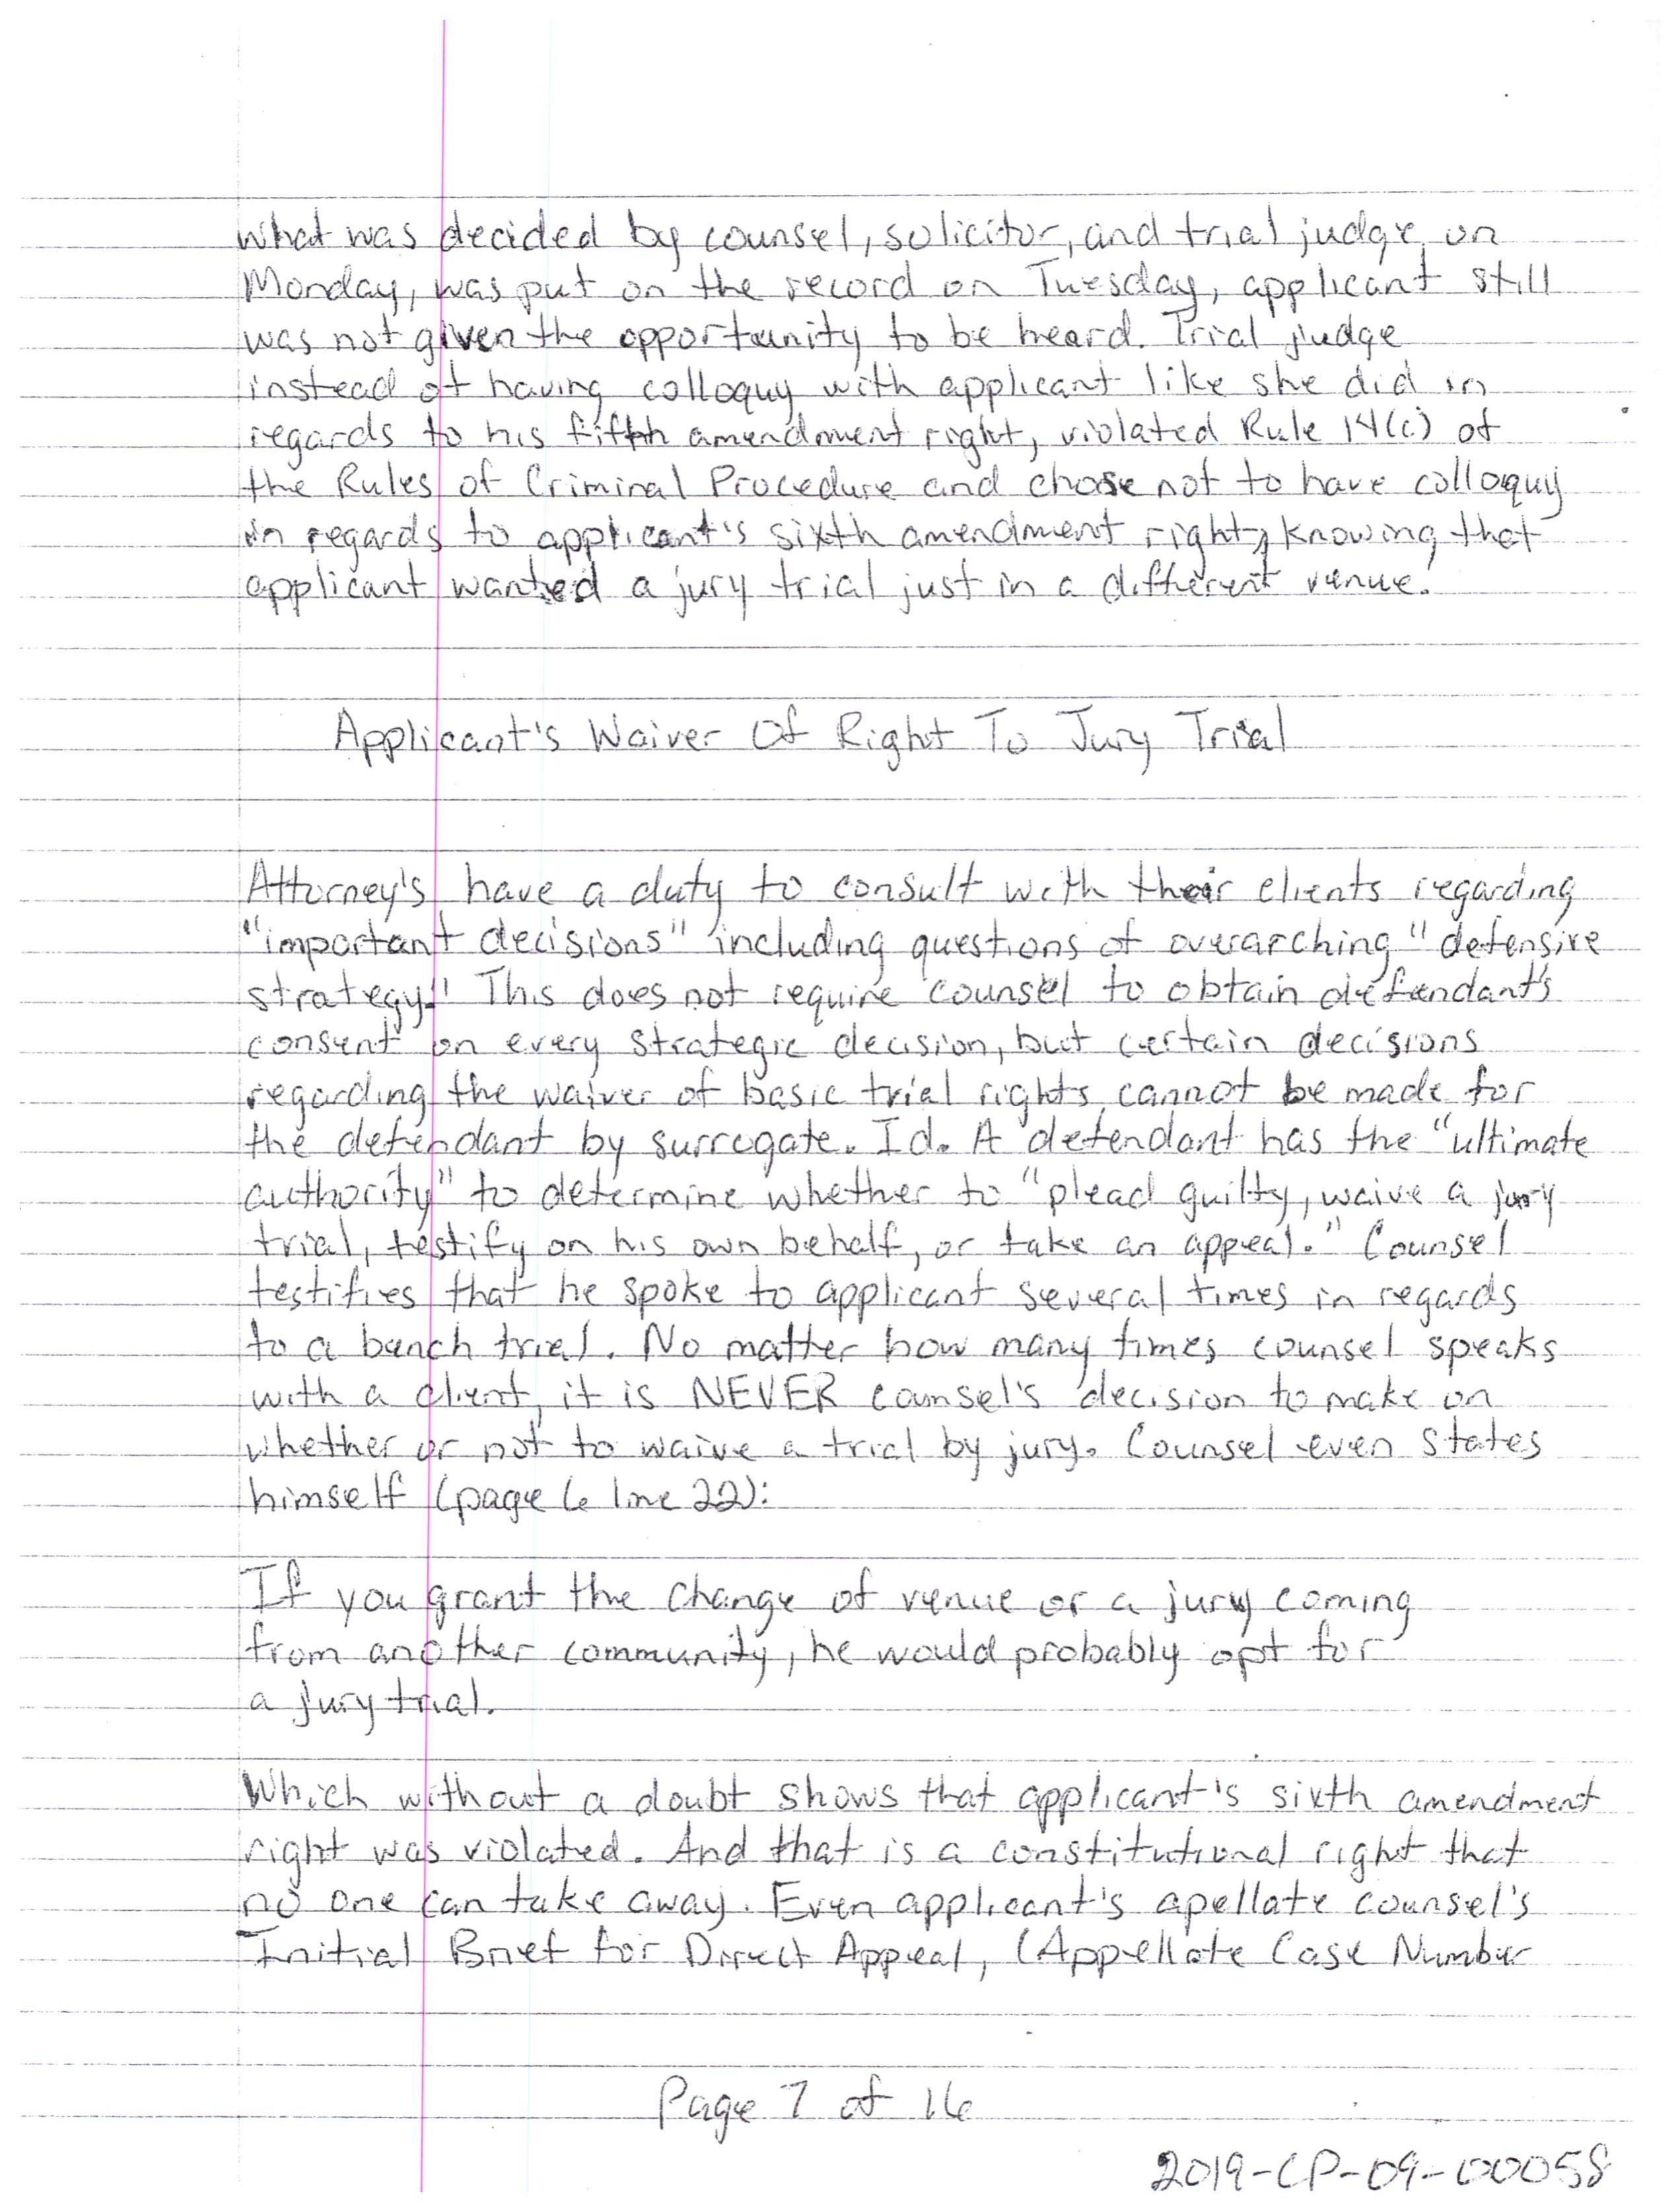 What was decided by counsel, solicitor, and trial judge on
Monday, was put on the record on Tuesday, applicant still
was not given the opportunity to be heard. Trial judge
instead of having colloquy with applicant like she did in
regards to his fifth amendment right, violated Rule 14(c) of
the Rules of Criminal Procedure and chose not to have colloquy
in regards to applicant's sixth amendment right, knowing that
applicant wanted a jury trial just in a different venue.
Applicant's Waiver Of Right To Jury Trial
Attorney's have a duty to consult with their clients regarding
"important decisions" including questions of overarching "defensive
strategy." This does not require counsel to obtain defendant's
consent on every strategic decision, but certain decisions
regarding the waiver of basic trial rights cannot be made for
the defendant by surrogate. Id. A defendant has the "ultimate
authority" to determine whether to "plead guilty, waive a jury
trial, testify on his own behalf, or take an appeal." Counsel
testifies that he spoke to applicant several times in regards
to a bench trial. No matter how many times counsel speaks
with a client, it is NEVER counsel's decision to make on
whether or not to waive a trial by jury. Counsel even states
himself (page 6 line 22):
If you grant the change of venue or a jury coming
from another community, he would probably opt for
a jury trial.
Which without a doubt shows that applicant's sixth amendment
right was violated. And that is a constitutional right that
no one can take away. Even applicant's apellate counsel's
Initial Brief for Direct Appeal, (Appellate Case Number
Page 7 of 16
2019-CP-09-00058